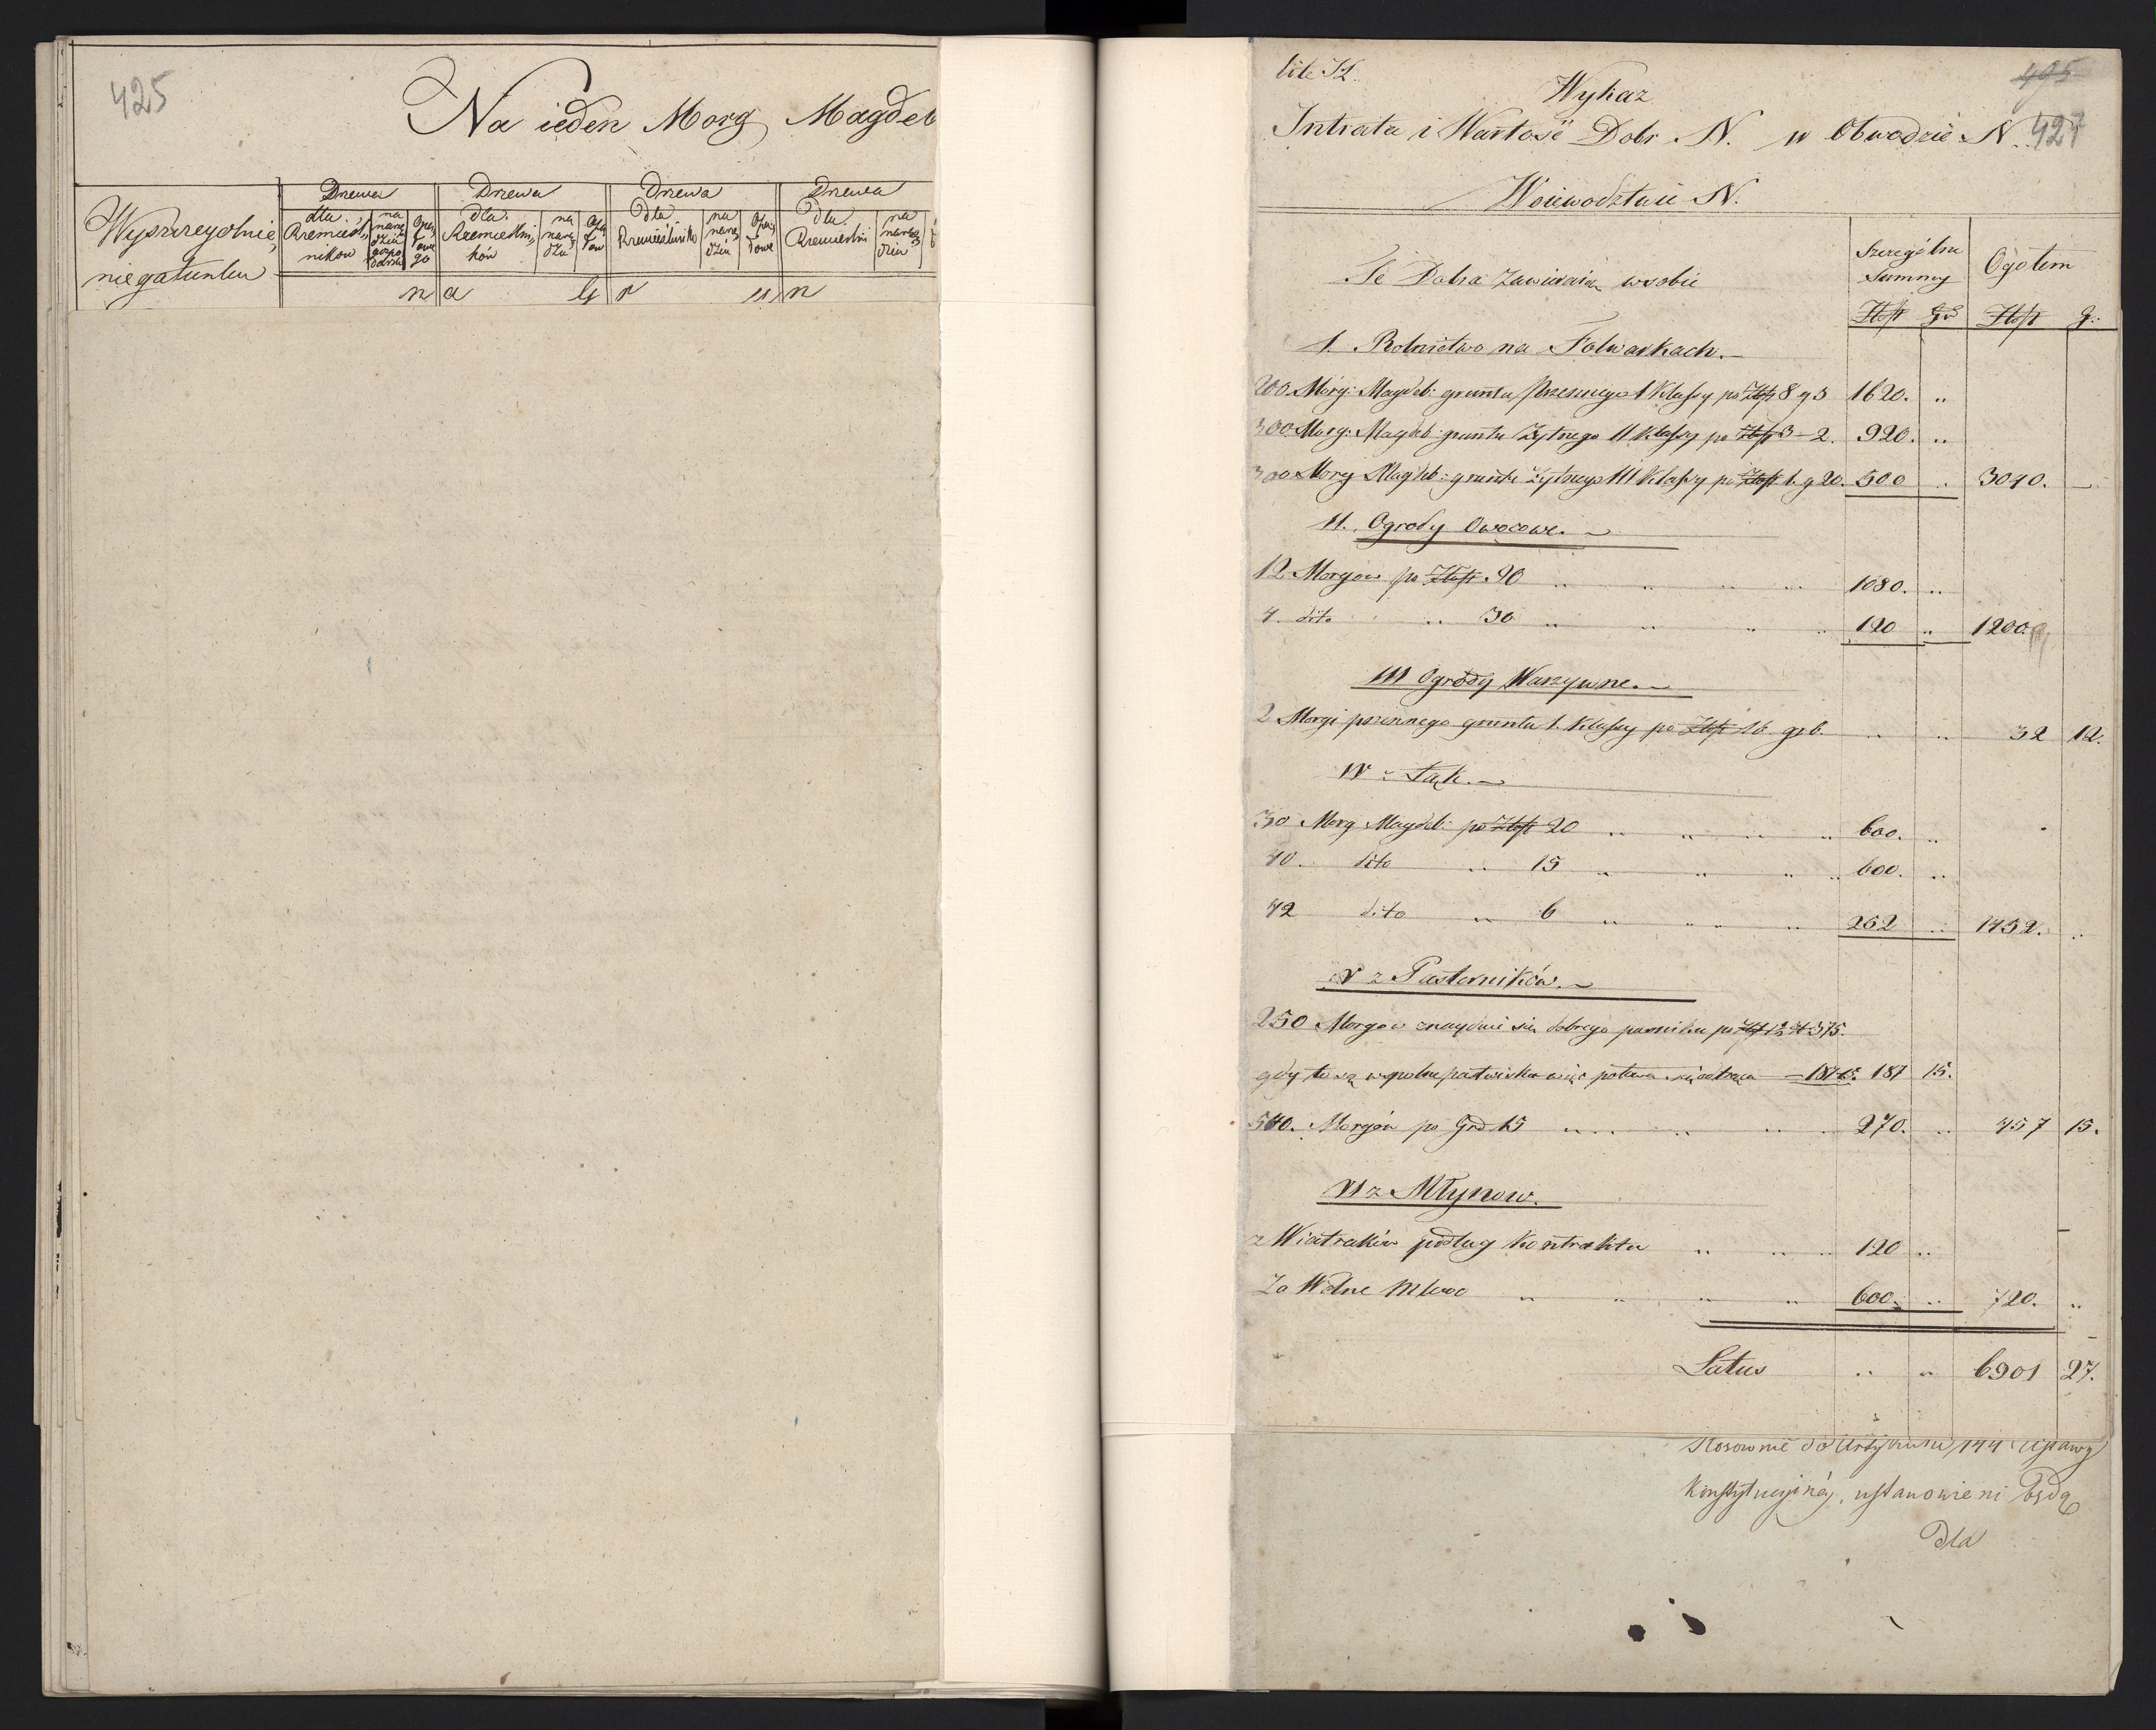 425
Na ieden Morg Magdeb
Wyszczegolnie,
nie gatunku
Drzewa Drzewa Drzewa Drzewa
dla Rzemieśl,nikow na narzędzia gospodarsk Opałowego
dla Rzemieślni,ków na narzędzia Opałow
dla Rzemieślników na narzędzia Opałowe
dla Rzemieślni na narzędzia
n a g r u n
lite K.
495
Wykaz
427
Intrata i Wartość Dobr N. w Obwodzie N.
Woiewodztwie N.
Te Dobra zawieraią w sobie
Szczególne Summy
Ogołem
Złpt Gr Złpt G:
1. Rolnictwo na Folwarkach.
200 Morg: Magdeb: gruntu Pszennego 1 Klassy po Złpt 8 g 3 1620. ..
300 Morg: Magdeb: gruntu Żytnego II Klassy po Złpt 3 - 2. 920. ..
300 Morg Magdeb: gruntu Żytnego III Klassy po Złpt 1. g 20. 500 .. 3040. —
II. Ogrody Owocowe.
12 Morgow po Złpt 90 1080. ..
4. dito .. 30 120 .. 1200.
III Ogrody Warzywne.
2 Morgi pszennego gruntu 1. Klassy po Złpt 16 gr 6. .. .. 32 12.
IV z Łąk.
30 Morg Magdeb: po Złpt 20 600. ..
40. dito .. 15 600. ..
42 dito .. 6 252 .. 1452. ..
V z Pasterników.
250 Morgow znayduie się dobrego pasnika po Złpt 1 1/2 zł 375.
gdy to są wspolne pastwiska więc połowa się odtrąca — 187 15. 187 15.
540. Morgów po Gro 15 270. .. 457 15.
VI z Młynow.
z Wiatraków podług Kontraktu 120 ..
Za Wolne Mlewo 600. .. 720. ..
Latus .. .. 6901 27.
Stosownie do Artykułu 144 Ustawy
Konstytucyiney, ustanowieni będą
dla